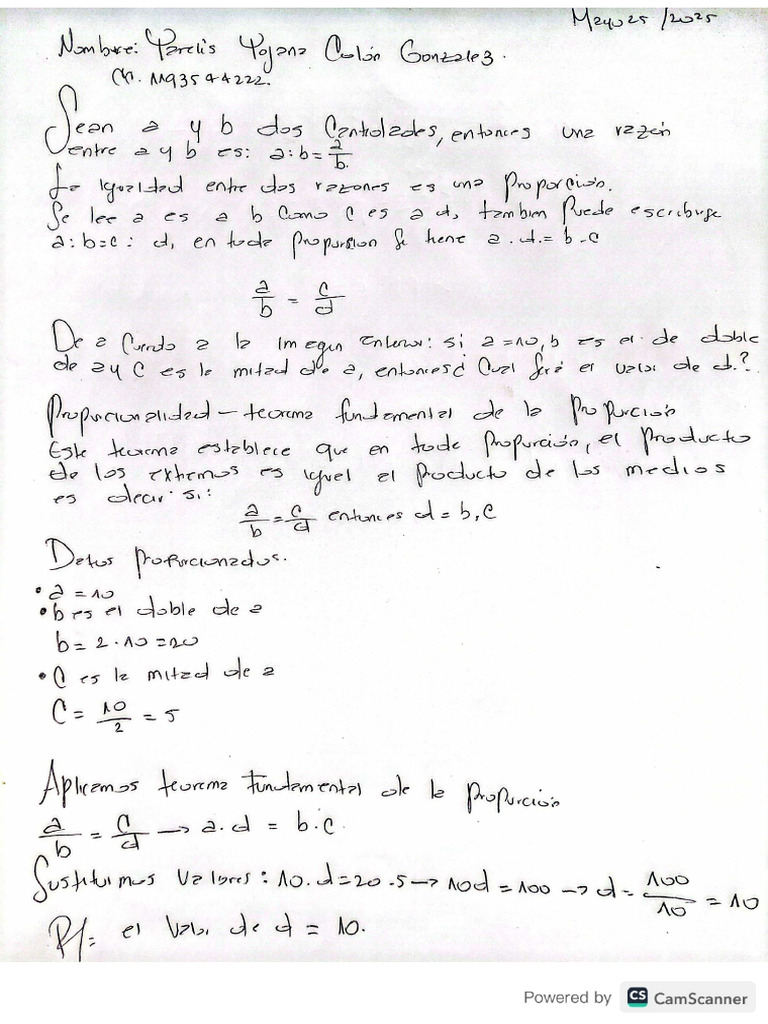 Mayo 25 /2025
Nombre: Yarelis Yojana Colón Gonzalez.
CC. 1193544222.
Sean a y b dos Cantidades, entonces una razón
entre a y b es: a:b = a/b.
La Igualdad entre dos razones es una Proporción.
Se lee a es a b Como C es a d, tambien Puede escribirse
a:b=c: d, en toda Proporsion Se tiene a.d.= b.c
a/b = c/d
De a Cuerdo a la Imagen Anterior: si a =10, b es el de doble
de a y C es la mitad de a, entonces¿ Cual Será el valor de d.?
Proporcionalidad – teorema fundamental de la Proporción
Este teorema establece que en toda Proporción, el Producto
de los extremos es igual al Producto de los medios
es decir si:
a/b = c/d entonces d = b.c
Datos Proporcionados.
• a = 10
• b es el doble de a
b = 2 . 10 = 20
• C es la mitad de a
C = 10/2 = 5
Aplicamos teorema Fundamental de la Proporción
a/b = c/d → a.d = b.c
Sustituimos Valores: 10.d=20.5→10d=100→d=100/10=10
R/= el Valor de d = 10.
Powered by CS CamScanner